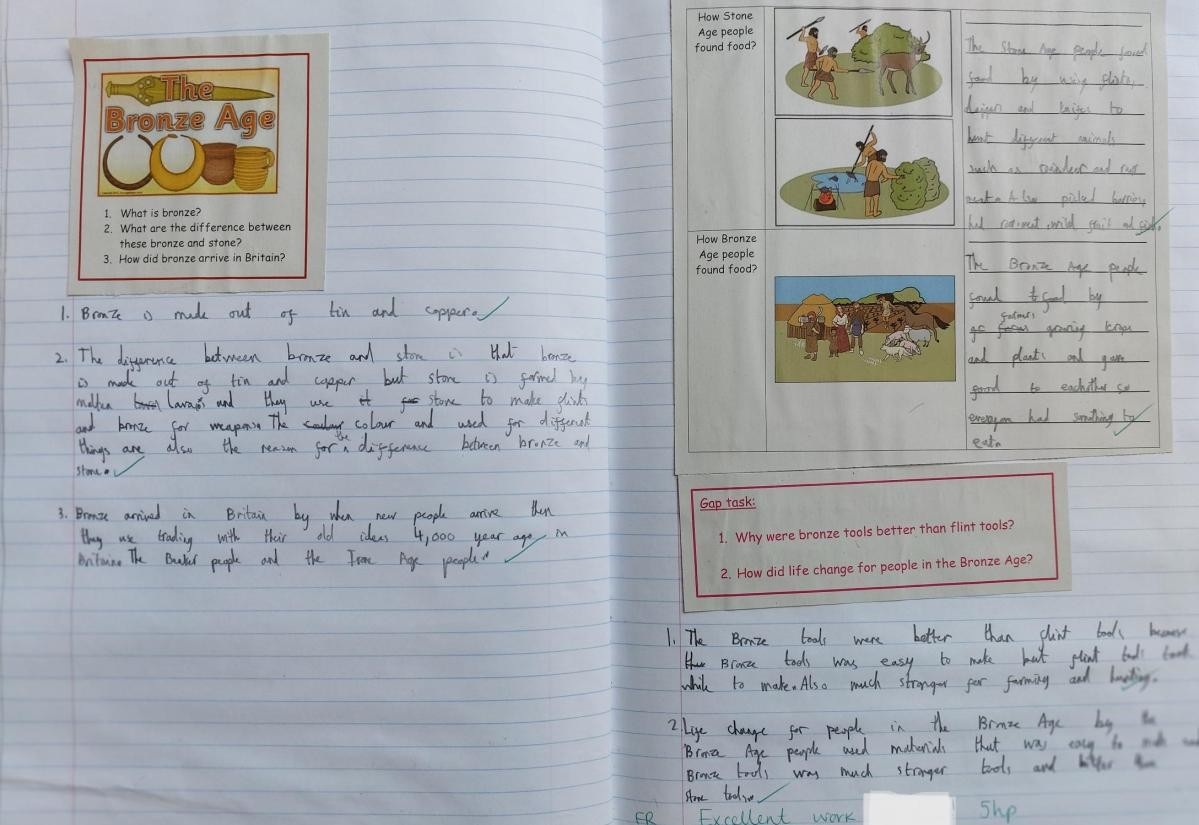 The
Bronze Age
1. What is bronze?
2. What are the difference between
these bronze and stone?
3. How did bronze arrive in Britain?
1. Bronze is made out of tin and copper.
2. The difference between bronze and stone is that bronze
is made out of tin and copper but stone is formed by
molten lava and they use it for stone to make flints
and bronze for weapons. The colour and used for different
things are also the reason for the difference between bronze and
stone.
3. Bronze arrived in Britain by when new people arrive then
they use trading with their old ideas 4,000 year ago in
Britain. The Beaker people and the Iron Age people.
How Stone
Age people
found food?
The Stone Age people found
food by using flints,
dagger and knifes to
hunt different animals
such as reindeer and raw
meat. Also picked berries
had raw meat, wild fruit and
How Bronze
Age people
found food?
The Bronze Age people
found food by
farmers
growing crops
and plants and gave
food to eachother so
everyone had something to
eat.
Gap task:
1. Why were bronze tools better than flint tools?
2. How did life change for people in the Bronze Age?
1. The Bronze tools were better than flint tools because
Bronze tools was easy to make but flint tools took
while to make. Also much stronger for farming and hunting.
2 Life change for people in the Bronze Age by the
Bronze Age people used materials that was easy to make and
Bronze tools was much stronger tools and better than
stone tools.
ER Excellent work 5hp